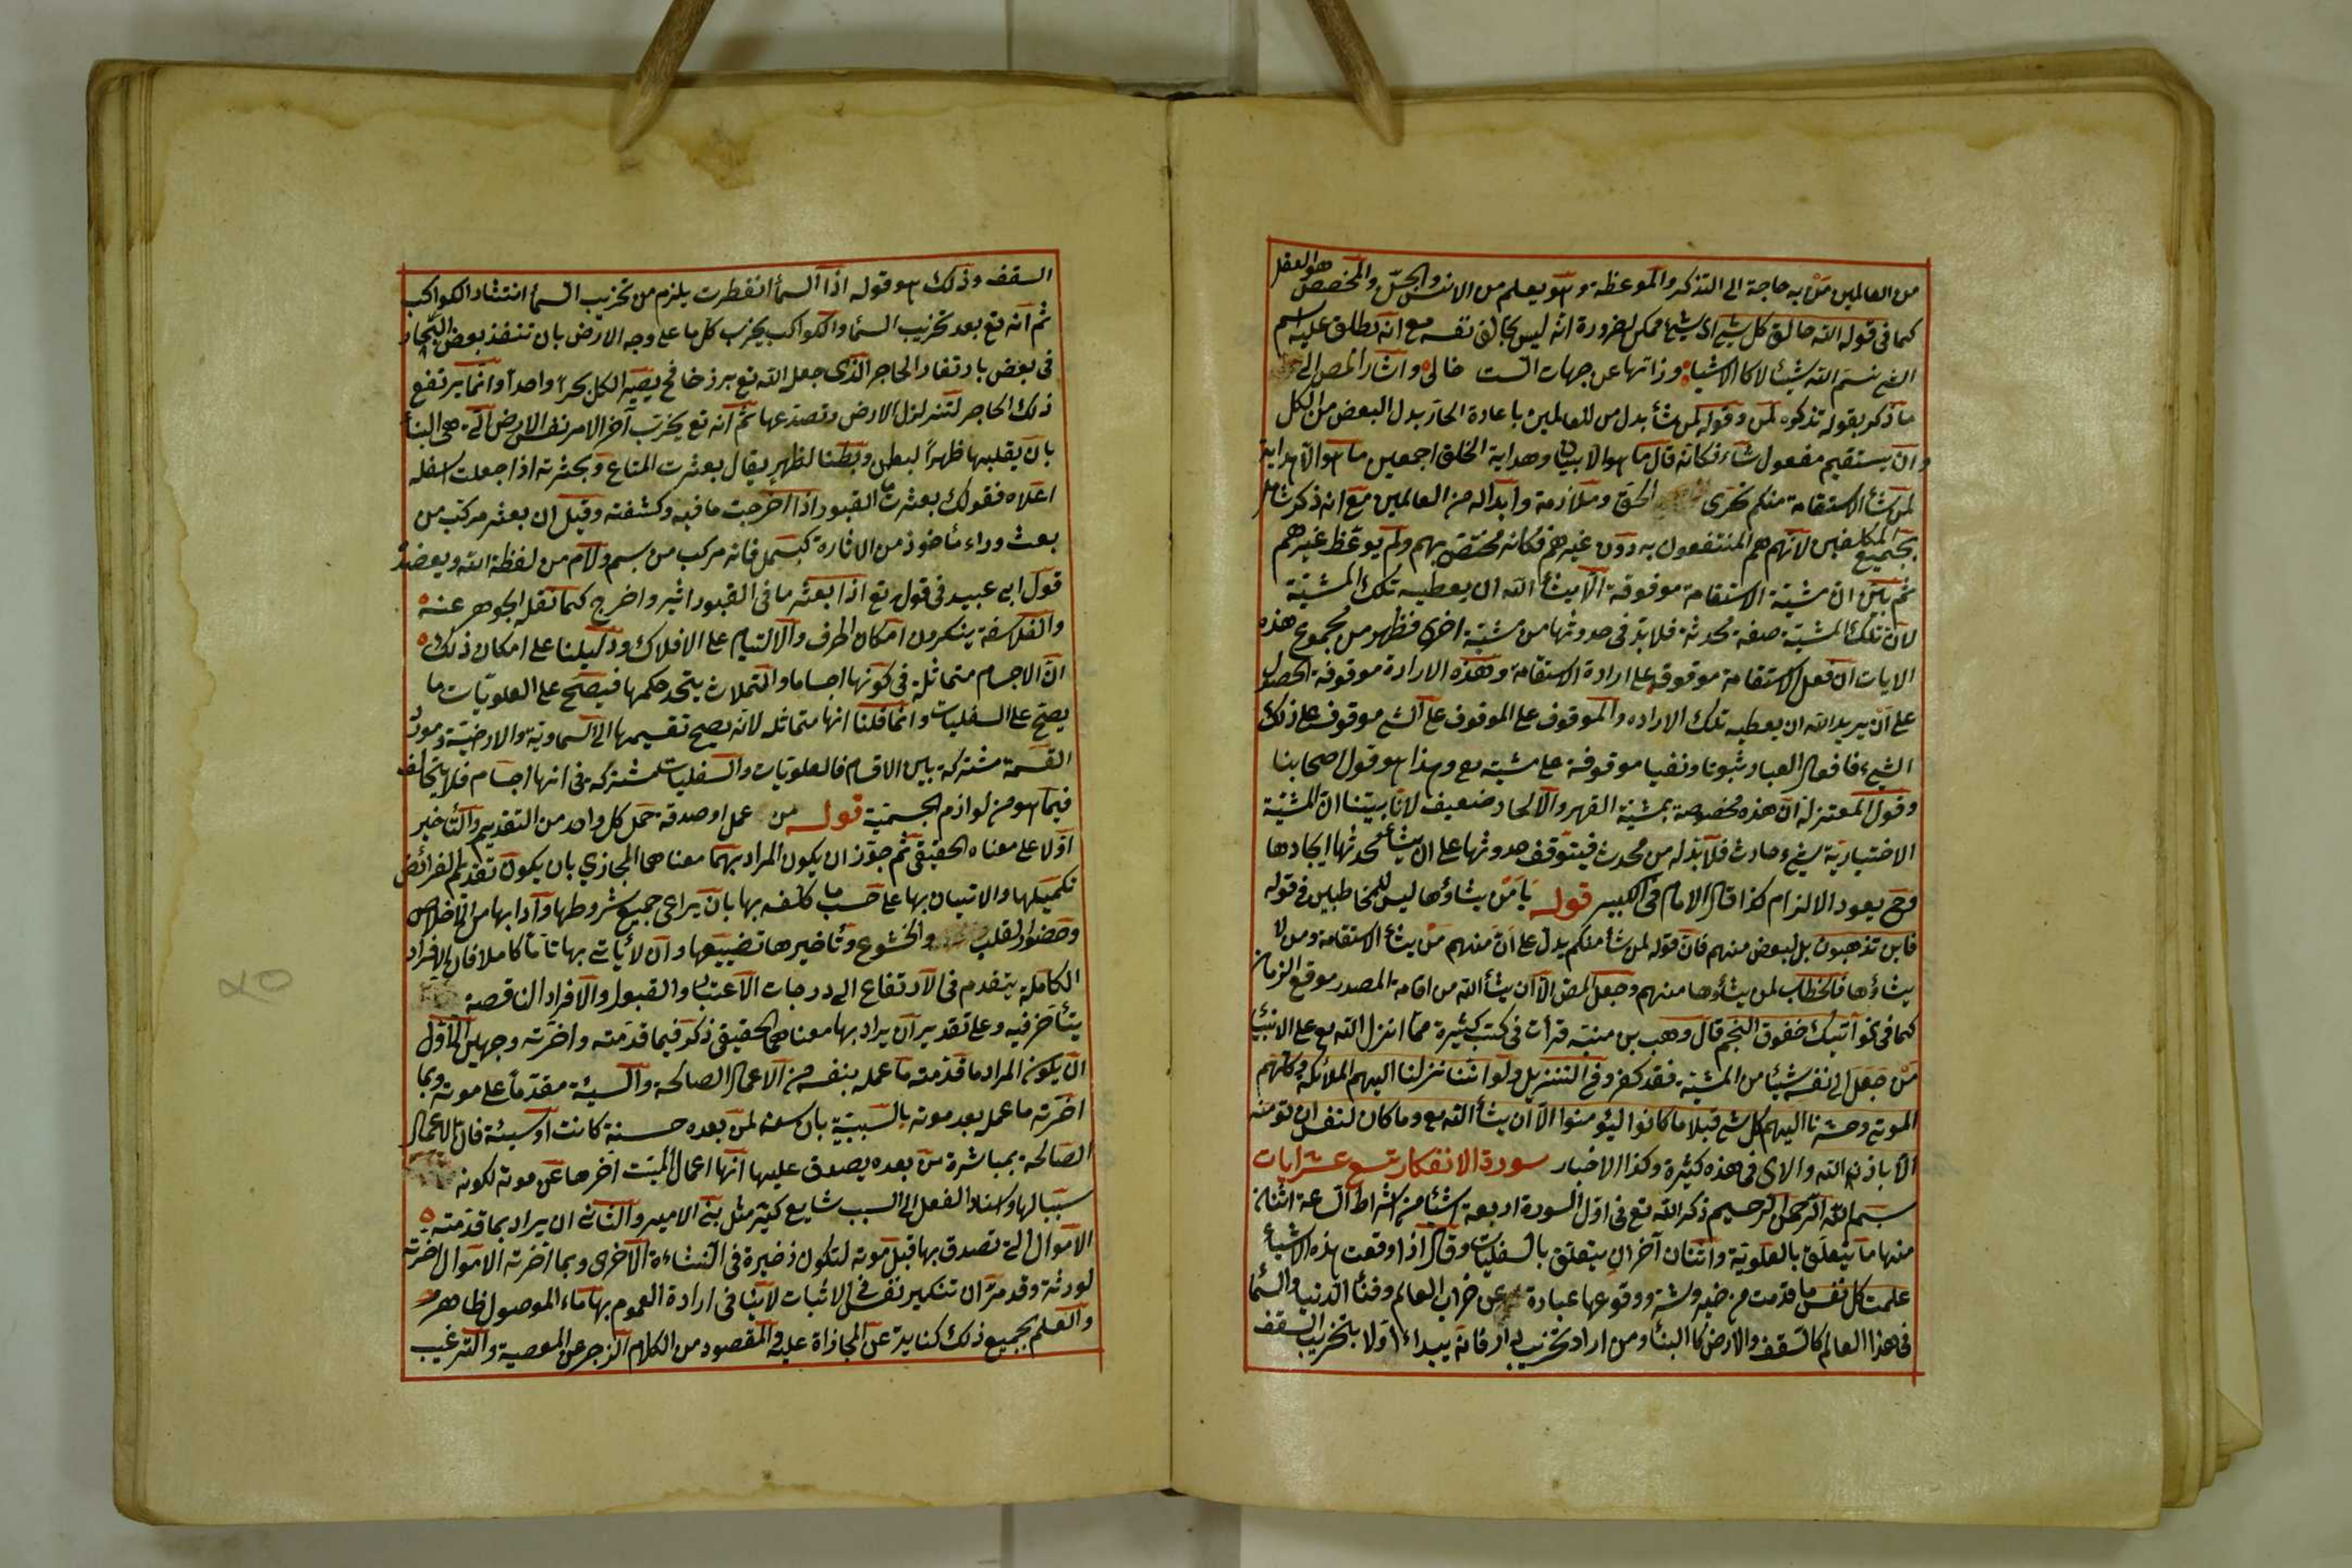 من العالمين مَنْ به حاجة الى التذكر والموعظة وهو يعلم من الانس والجنّ والمخصص هو العقل
كما فى قوله الله خالق كل شئ اى شئ ممكن لضرورة انه ليس بخالق نفسه مع انه يطلق عليه اسم
الشئ شئ لا كالاشياء وذاتها عن جهات الست خالى واشار المص الى
ما ذكر بقوله تذكره لمن وقوله لمن شأ بدل من للعالمين باعادة الجار بدل البعض من الكل
وان يستقيم مفعول شاء فكانه قال ما هو الا بيان وهداية الخلق اجمعين ما هو الا هداية
لمن شأ الاستقامة منكم بتحرى الحق وملازمة وابداله من العالمين مع انه ذكر شامل
بجميع المكلفين لانهم هم المنتفعون به دون غيرهم فكانه مختص بهم ولم يوعظ غيرهم
ثم بيّن ان مشيّة الاستقامة موقوفة الا ان يشأ الله ان يعطيه تلك المشيّة
لان تلك المشيّة صفة محدثة فلابد فى حدوثها من مشيّة اخرى فظهر من مجموع هذه
الايات ان فعل الاستقامة موقوف على ارادة الاستقامة وهذه الارادة موقوفة الحصول
على ان يريد الله ان يعطيه تلك الاراده والموقوف على الموقوف على الشئ موقوف على ذلك
الشئ فافعال العباد ثبوتا ونفيا موقوفة على مشية تع وهذا هو قول اصحابنا
وقول المعتزلة ان هذه مخصوصة بمشيّة القهر والالجاء ضعيف لانا بيّنا ان المشيّة
الاختيارية شئ حادث فلابد له من محدث فيتوقف حدوثها على ان يشأ محدثها ايجادها
وح يعود الالزام كذا قال الامام فى الكبير قوله يا مَنْ يشاؤها ليس للمخاطبين فى قوله
فاين تذهبون بل لبعض منهم فان قوله لمن شأ منكم يدل على انّ منهم مَنْ يشأ الاستقامة ومن لا
يشاؤها فالخطاب لمن يشاؤها منهم وجعل المص الا ان يشأ الله من اقامة المصدر موقع الزمان
كما فى نحو آتيك خفوق النجم قال وهب بن منبّه قرأت فى كتب كثيرة مما انزل الله تع على الانبيا
مَنْ جَعَلَ الى نفسه شيئا من المشيّة فقد كفر وفى التنزيل ولو اننا نزلنا اليهم الملائكة وكلّمهم
الموتى وحشرنا اليهم كل شئ قبلا ما كانوا ليؤمنوا الا ان يشأ الله تع وما كان لنفس ان تؤمن
الا باذن الله والاى فى هذه كثيرة وكذا الاخبار سورة الانفطار تسع عشر ايات
بسم الله الرحمن الرحيم ذكر الله تع فى اوّل السورة اربعة اشيأ من اشراط الساعة اثنان
منها ما يتعلّق بالعلويّة واثنان آخران يتعلق بالسفليات وقال اذا وقعت هذه الاشياء
علمت كل نفس ما قدمت من خير وشر ووقوعها عبارة عن خراب العالم وفنأ الدنيا والسما
فى هذا العالم كالسقف والارض كالبنأ ومن اراد تخريب دار فانه يبداء اولا بتخريب السقف
السقف وذلك هو قوله اذا السمأ انفطرت يلزم من تخريب السمأ انتشار الكواكب
ثم انه تع بعد تخريب السمأ والكواكب يخرب كل ما على وجه الارض بان تنفذ بعض البحار
فى بعض بارتفاع الحاجز الذى جعل الله تع برزخا فح يصير الكل بحرا واحدا وانما يرتفع
ذلك الحاجز لتزلزل الارض وتصدعها ثم انه تع يخرّب آخر الامر نفس الارض التى هى البنأ
بان يقلبها ظهراً لبطن وبطنا لظهر يقال بعثرت المتاع وبحثرته اذا جعلت اسفله
اعلاه فقولك بعثرت القبور اذا اخرجت ما فيه وكشفته وقيل ان بعثر مركب من
بعث وراء مأخوذ من الاثارة كبسمل فانه مركب من بسم ولام من لفظة الله ويعضده
قول ابى عبيد فى قوله تع اذا بعثر ما فى القبور اثير واخرج كما نقله الجوهر عنه
والفلاسفة ينكرون امكان الخرق والالتيام على الافلاك ودليلنا على امكان ذلك
انّ الاجسام متماثلة فى كونها اجساما والتمثلات يتحد حكمها فيصحّ على العلويّات ما
يصحّ على السفليات وانما قلنا انها متماثلة لانه يصح تقسيمها الى السماوية والارضيّة ومورد
القسمة مشتركة بين الاقسام فالعلويات والسفليات مشتركة فى انها اجسام فلا يتخالف
فيما هو من لوازم الجسمية قوله من عمل او صدقة حمل كل واحد من التقديم والتأخير
اوّلا على معناه الحقيقى ثم جوّز ان يكون المراد بهما معناهما المجازي بان يكون تقديم الفرائض
تكميلها والاتيان بها على حسب ما كلّفه بها بان يراعى جميع شروطها وآدابها من الاخلاص
وحضور القلب والخشوع وتأخيرها تضييعها وان لا يأتى بها تامّا كاملا فان الافراد
الكاملة يتقدم فى الارتفاع الى درجات الاعتبار والقبول والافراد الناقصة
يتأخر فيه وعلى تقدير ان يراد بها معناهما الحقيقى ذكر فيما قدمته واخرته وجهين الاوّل
ان يكون المراد ما قدمته ما عمله بنفسه من الاعمال الصالحة والسيئة مقدّما على موته وبما
اخرته ما عمل بعد موته بالسببيّة بان سن لمن بعده حسنة كانت او سيئة فان الاعمال
الصالحة بمباشرة من بعده يصدق عليها انها اعمال الميت اخرها عن موته لكونه
سببا لها واسناد الفعل الى السبب شايع كثير مثل بنى الامير والثانى ان يراد بما قدمته
الاموال التى تصدق بها قبل موته لتكون ذخيرة فى النشاءة الاخرى وبما اخرته الاموال اخرته
لورثته وقد مرّ ان تنكير نفس فى الاثبات لا ينافى ارادة العموم بها ماء الموصول ظاهر
والعلم بجميع ذلك كناية عن المجازاة عليه والمقصود من الكلام الزجر عن المعصية والترغيب